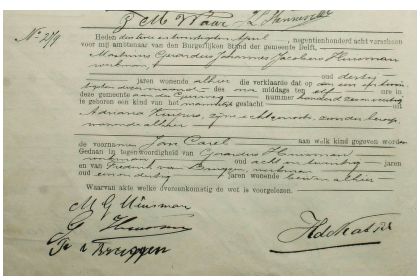 No 279
Heden den twee en twintigsten April negentienhonderd acht verschenen
voor mij ambtenaar van den Burgerlijken Stand der gemeente Delft,
Martinus Gerardus Johannes Jacobus Huisman
werkman, oud dertig
jaren wonende alhier die verklaarde dat op den een en twin-
tigsten dezer maand des na middags ten elf ure in
deze gemeente aan de nummer honderd
is geboren een kind van het mannelijk geslacht uit
Adriana zijne echtgenoote, zonder beroep,
wonende alhier
de voornamen Jan Carel aan welk kind gegeven worden
Gedaan in tegenwoordigheid van Gerardus Huisman
werkman oud acht en twintig jaren
en van Frederik van Bruggen, werkman
oud een en dertig jaren wonende beiden alhier
Waarvan akte welke overeenkomstig de wet is voorgelezen.
M G Huisman
G Huisman
Fr v Bruggen